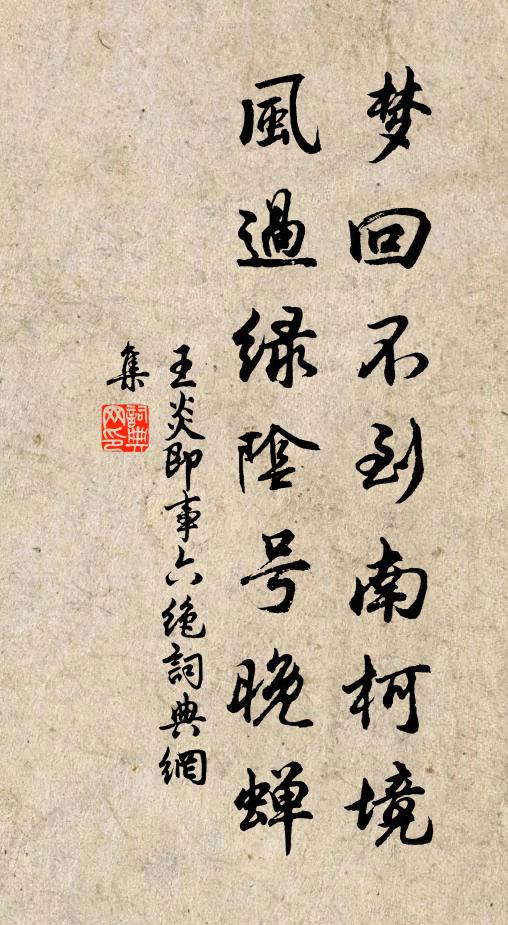 梦回不到南柯境
風過緑陰号晚蝉
王炎即事六绝詞典網
集
詞典网印